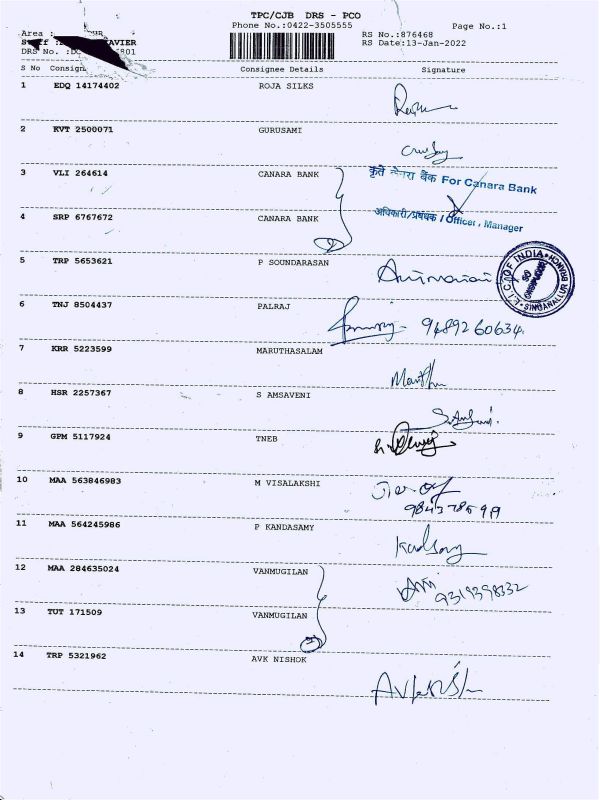 TPC/CJB DRS - PCO
Phone No.:0422-3505555 Page No.:1
Area : RS No.:876468
XAVIER RS Date:13-Jan-2022
DRS No. : 801
S No Consign Consignee Details Signature
1 EDQ 14174402 ROJA SILKS
2 KVT 2500071 GURUSAMI
3 VLI 264614 CANARA BANK
कृते केनरा बैंक For Canara Bank
4 SRP 6767672 CANARA BANK
अधिकारी/प्रबंधक / Officer, Manager
2
5 TRP 5653621 P SOUNDARASAN
L.I.C. OF INDIA BRANCH SINGANALLUR
6 TNJ 8504437 PALRAJ 9489260634.
7 KRR 5223599 MARUTHASALAM
8 HSR 2257367 S AMSAVENI
9 GPM 5117924 TNEB
10 MAA 563846983 M VISALAKSHI
11 MAA 564245986 P KANDASAMY
12 MAA 284635024 VANMUGILAN
9319398332
13 TUT 171509 VANMUGILAN
2
14 TRP 5321962 AVK NISHOK